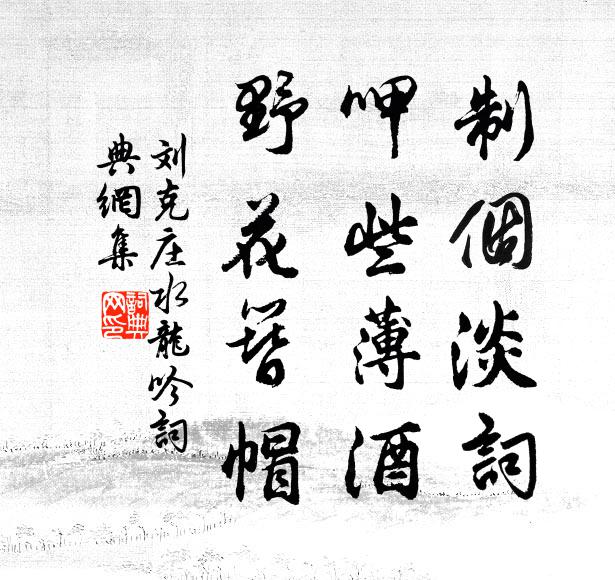 制個淡詞
呷些薄酒
野花簪帽
刘克庄水龍吟詞
典網集
詞典
网印